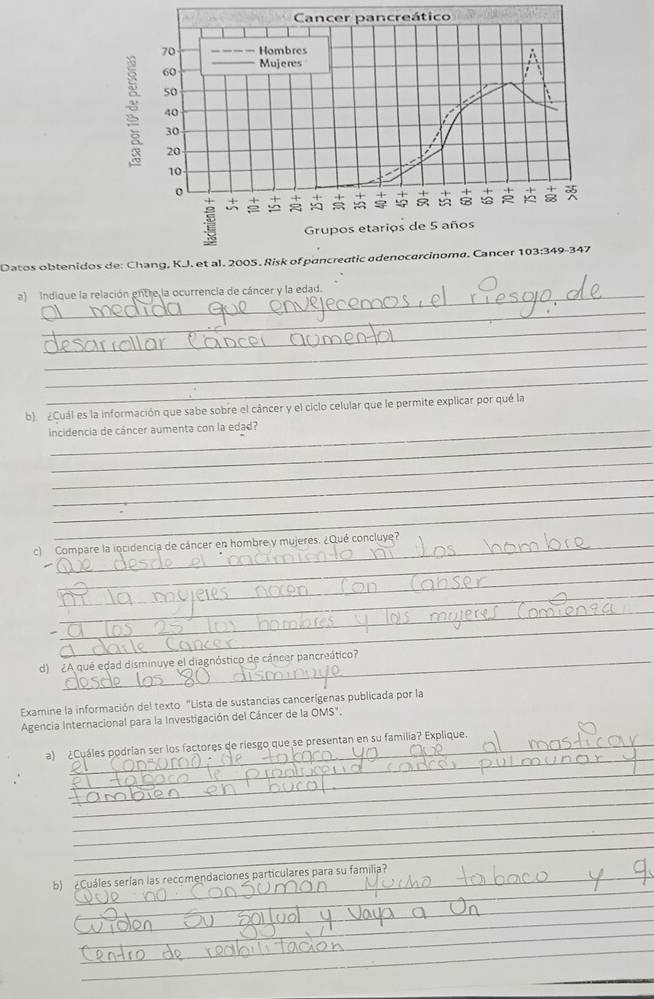 Cancer pancreático
Hombres
Mujeres
70
60
50
40
30
20
10
0
Tasa por 10⁵ de personas
Nacimiento + 5 + 10 + 15 + 20 + 25 + 30 + 35 + 40 + 45 + 50 + 55 + 60 + 65 + 70 + 75 + 80 + >84
Grupos etarios de 5 años
Datos obtenidos de: Chang, K.J. et al. 2005. Risk of pancreatic adenocarcinoma. Cancer 103:349-347
a) Indique la relación entre la ocurrencia de cáncer y la edad.
a medida que envejecemos, el riesgo. de
desarrollar cáncer aomenta
b) ¿Cuál es la información que sabe sobre el cáncer y el ciclo celular que le permite explicar por qué la
incidencia de cáncer aumenta con la edad?
c) Compare la incidencia de cáncer en hombre y mujeres. ¿Qué concluye?
- Que desde el nacimiento ni los hombre
ni la mujeres nacen con Canser
- a los 25 los hombres y las mujeres comienza
a darle cancer
d) ¿A qué edad disminuye el diagnóstico de cáncer pancreático?
desde los 80 disminuye
Examine la información del texto "Lista de sustancias cancerígenas publicada por la
Agencia Internacional para la Investigación del Cáncer de la OMS".
a) ¿Cuáles podrían ser los factores de riesgo que se presentan en su familia? Explique.
el consumo de tabaco ya que al masticar
el tabaco le cancer pulmunar y
tambien en bucal.
b) ¿Cuáles serían las recomendaciones particulares para su familia?
Que no consuman Mucho tabaco y q
cuiden su salud y vaya a un
centro de reabilitacion